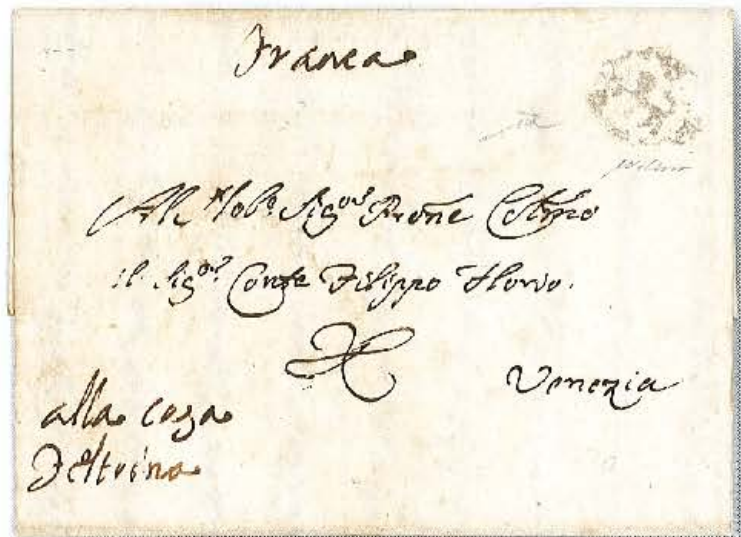 Franca
All Nob.e Sig.or Prone Col.mo
il Sig.or Conte Filippo Florio.
Venezia
alla casa
Feltrina